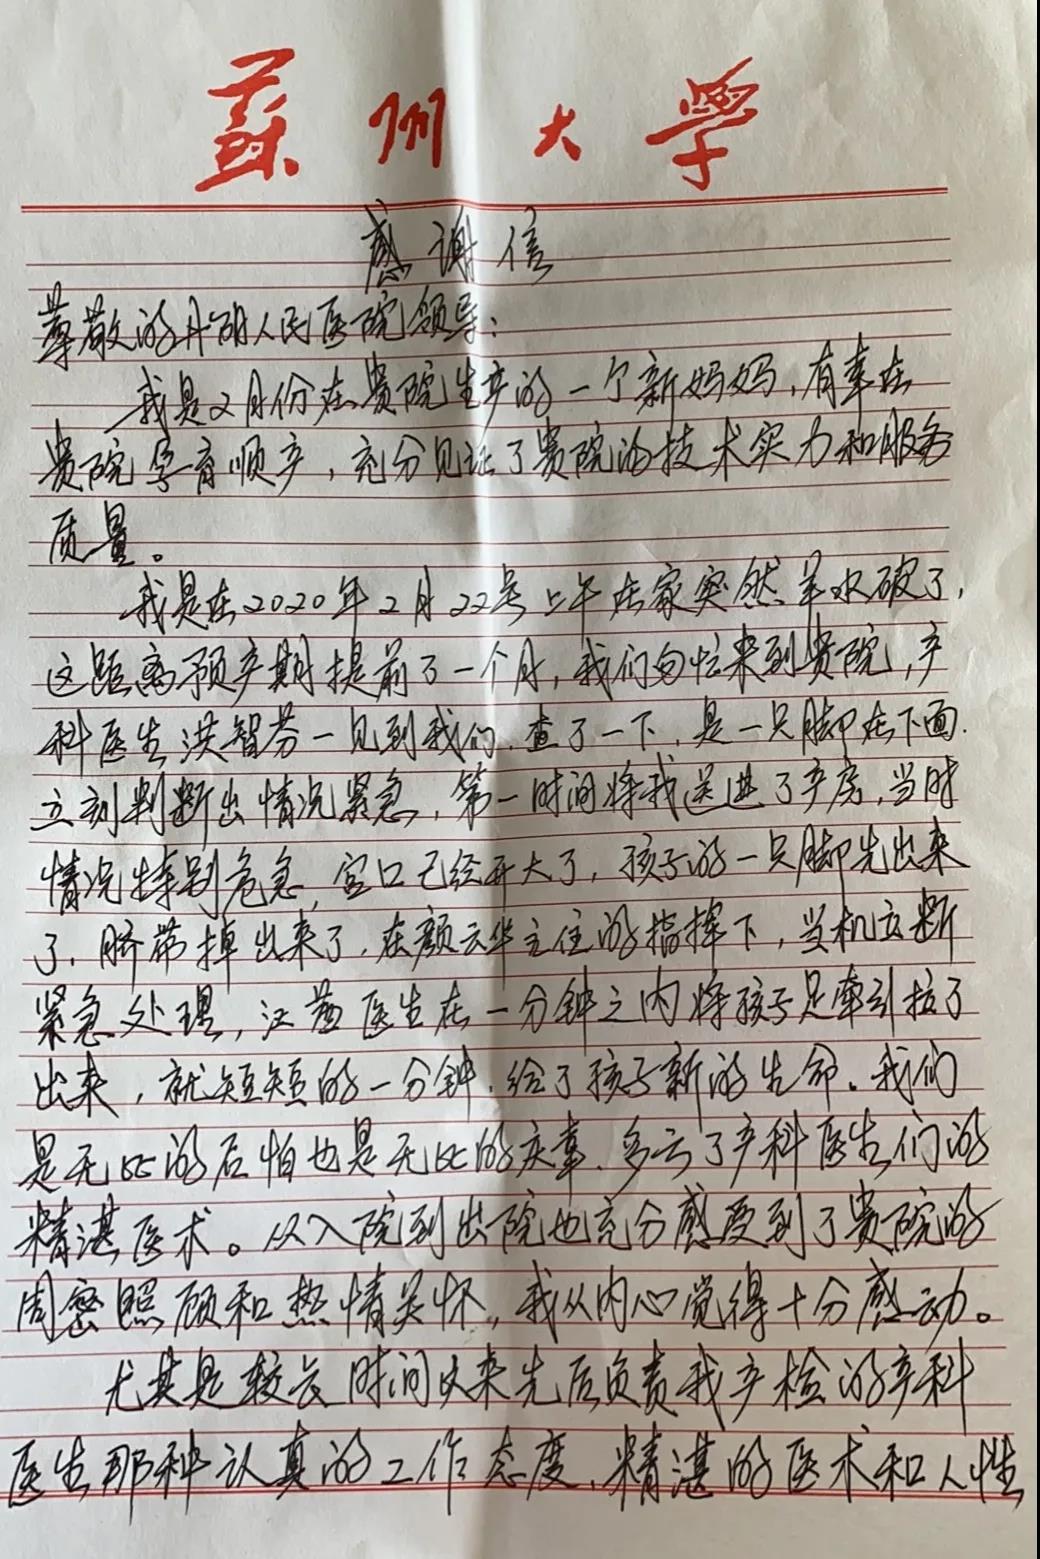 蘇州大學
感谢信
尊敬的丹阳人民医院领导：
我是2月份在贵院生产的一个新妈妈，有幸在
贵院孕育顺产，充分见证了贵院的技术实力和服务
质量。
我是在2020年2月22号上午在家突然羊水破了，
这距离预产期提前了一个月，我们匆忙来到贵院，产
科医生洪智芬一见到我们，查了一下，是一只脚在下面，
立刻判断出情况紧急，第一时间将我送进了产房，当时
情况特别危急，宫口已经开大了，孩子的一只脚先出来
了，脐带掉出来了，在颜云华主任的指挥下，当机立断
紧急处理，江茜医生在一分钟之内将孩子足牵引拉了
出来，就短短的一分钟，给了孩子新的生命。我们
是无比的后怕也是无比的庆幸，多亏了产科医生们的
精湛医术。从入院到出院也充分感受到了贵院的
周密照顾和热情关怀，我从内心觉得十分感动。
尤其是较长时间以来先后负责我产检的产科
医生那种认真的工作态度，精湛的医术和人性